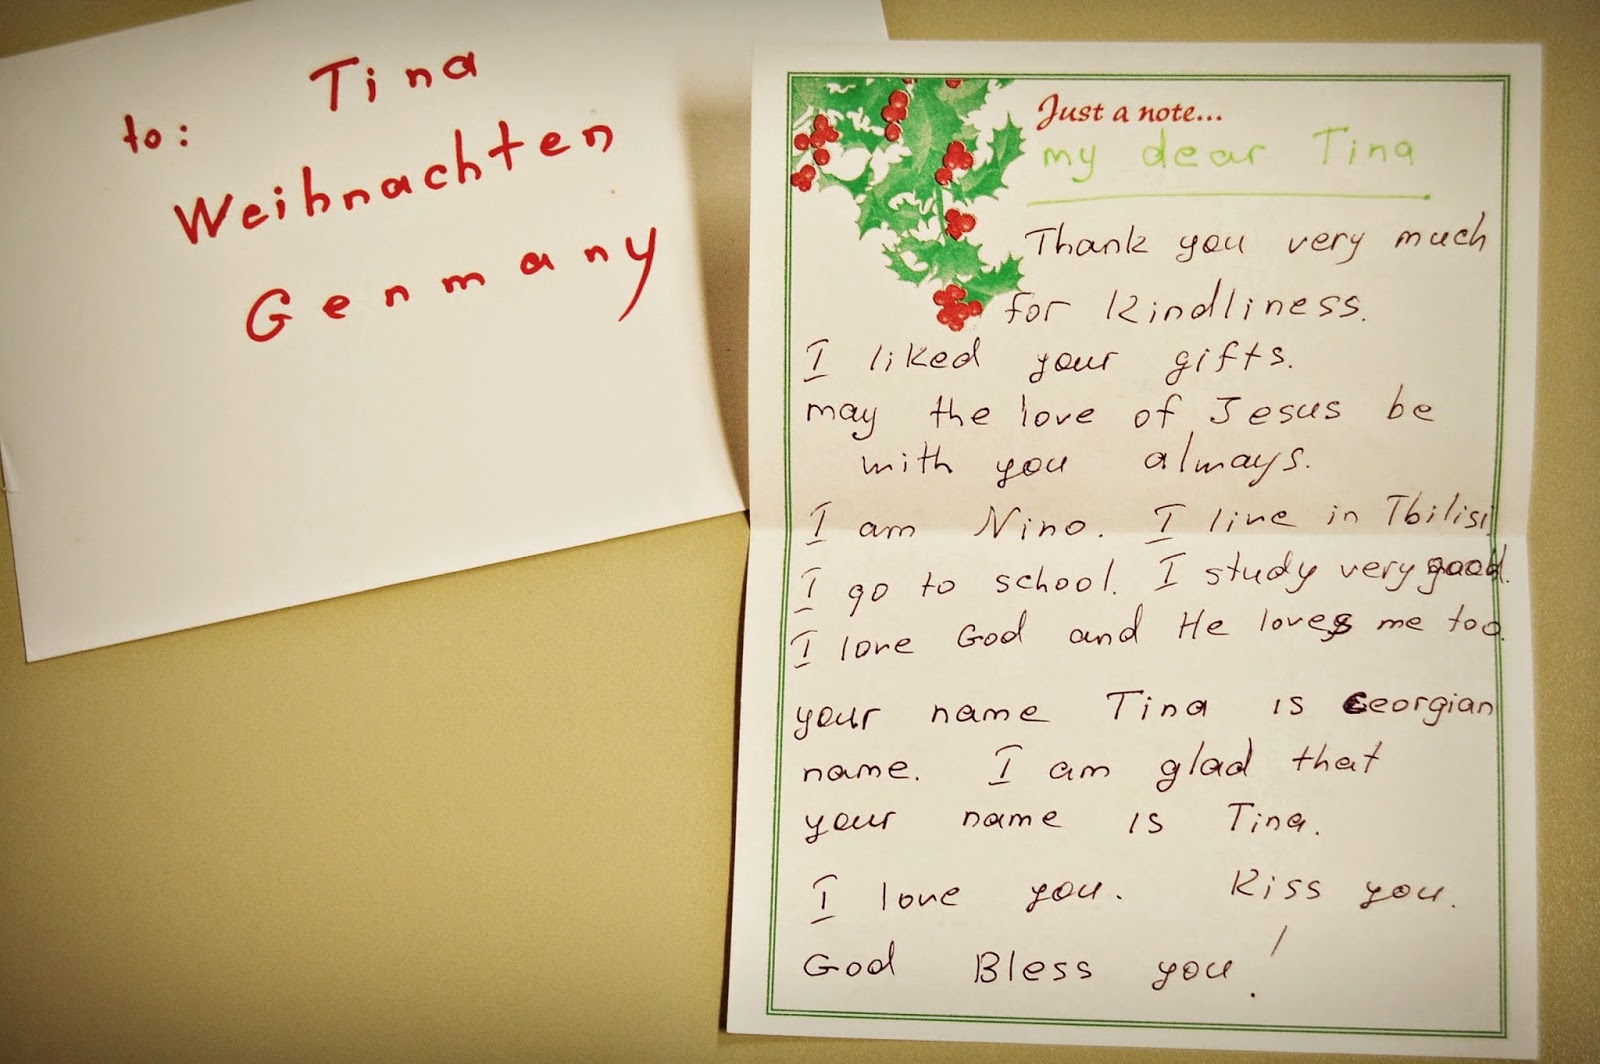 Tina
to:
Weihnachten
Genmany
Just a note...
my dear Tina
Thank you very much
for kindliness.
I liked your gifts.
may the love of Jesus be
with you always.
I am Nino. I live in Tbilisi
I go to school. I study very good.
I love God and He loves me too.
your name Tina is Georgian
name. I am glad that
your name is Tina.
I love you. Kiss you.
God Bless you!